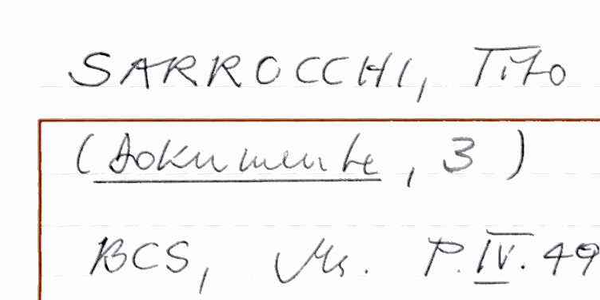 SARROCCHI, Tito
(Dokumente, 3)
BCS, Ms. P.IV.49